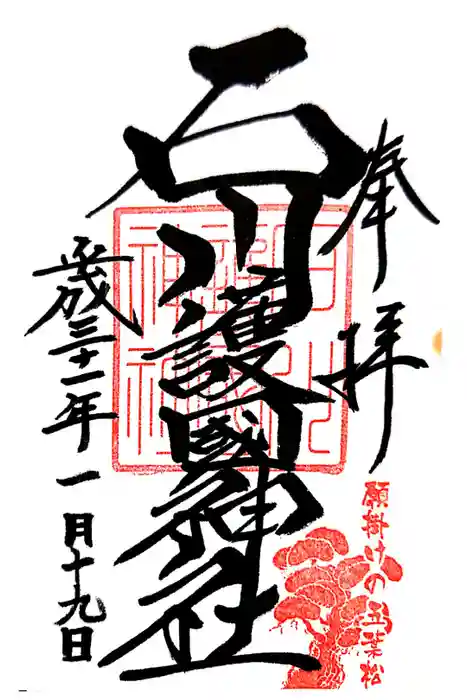 奉拝
石川護國神社
平成三十一年一月十九日
願掛けの五葉松